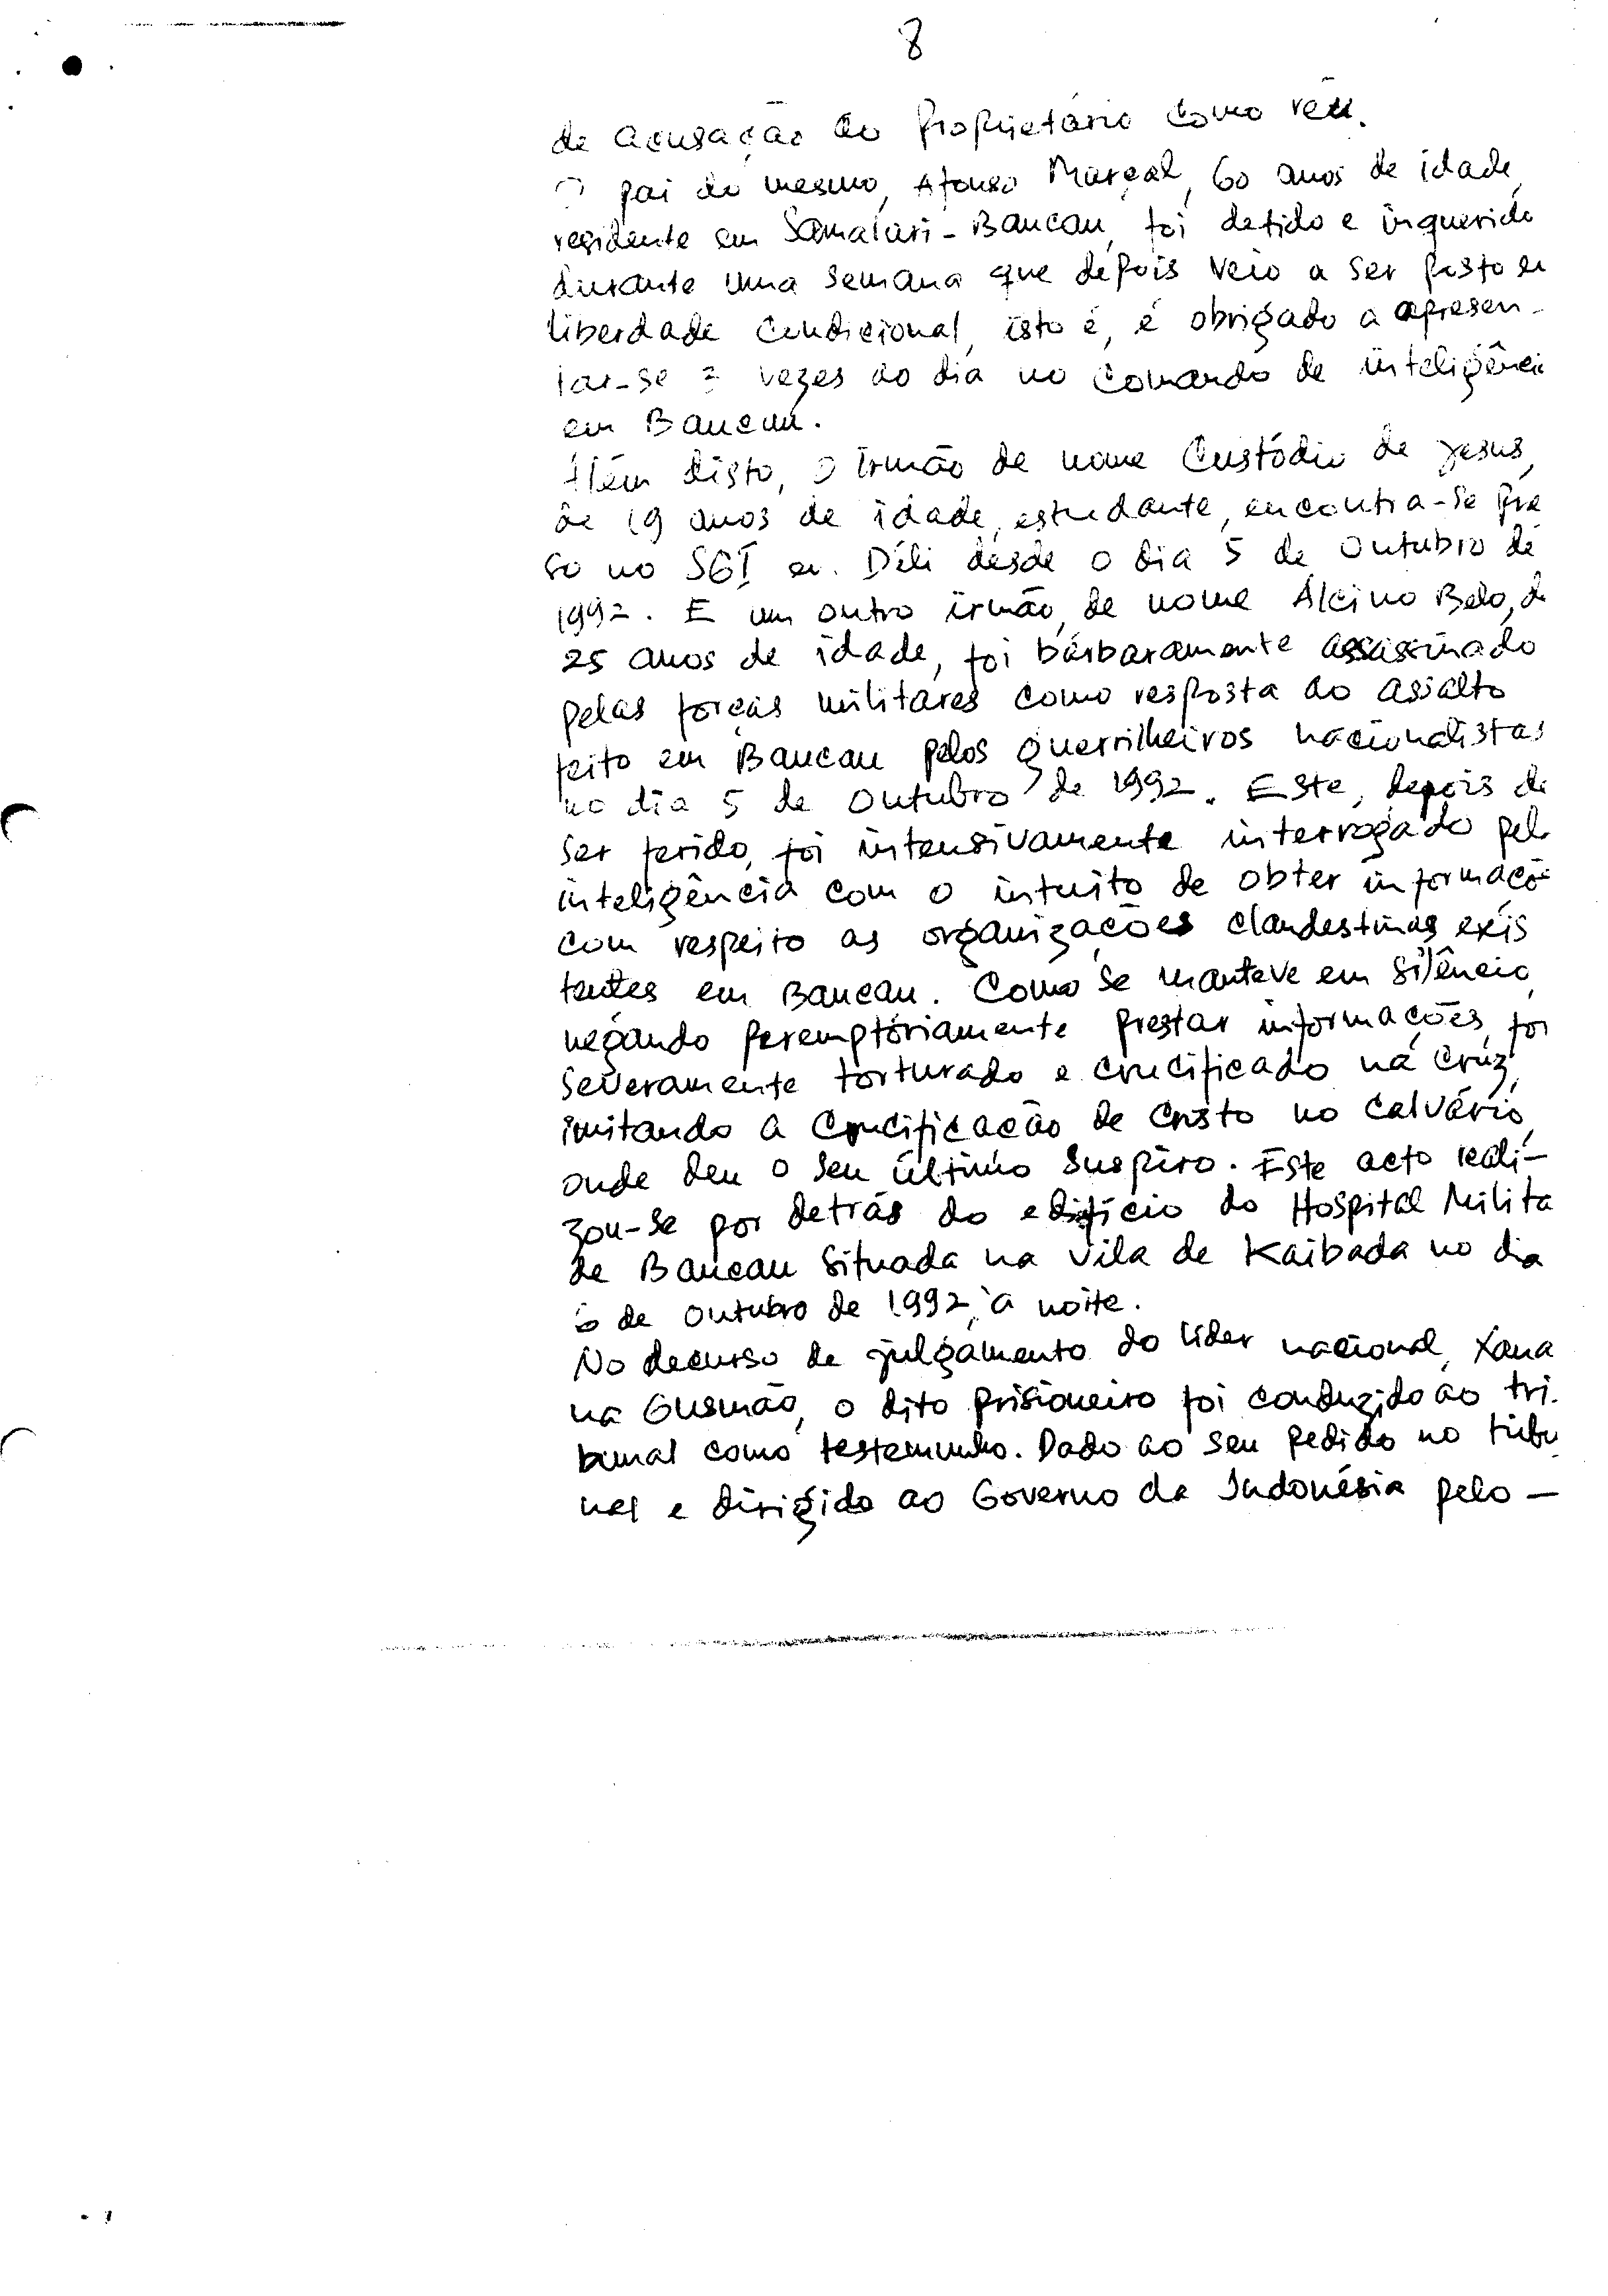 8
de acusação ao proprietário como réu.
O pai do mesmo, Afonso Marçal, 60 anos de idade,
residente em Samalari - Baucau, foi detido e inquerido
durante uma semana que depois veio a ser posto em
liberdade condicional, isto é, é obrigado a apresen-
tar-se vezes ao dia no comando de inteligência
em Baucau.
Além disto, o irmão de nome Custódio de Jesus,
de 19 anos de idade, estudante, encontra-se pre
so no SGI em Díli desde o dia 5 de Outubro de
1992. E um outro irmão, de nome Alcino Belo, de
25 anos de idade, foi bárbaramente assassinado
pelas forças militares como resposta ao assalto
feito em Baucau pelos guerrilheiros nacionalistas
no dia 5 de Outubro de 1992. Este, depois de
ser ferido, foi intensivamente interrogado pela
inteligência com o intuito de obter informaçõe
com respeito as organizações clandestinas exis
tentes em Baucau. Como se manteve em silêncio,
negando peremptóriamente prestar informações, foi
severamente torturado e crucificado na cruz,
imitando a crucificação de Cristo no Calvário,
onde deu o seu último suspiro. Este acto reali-
zou-se por detrás do edifício do Hospital Milita
de Baucau situada na vila de Kaibada no dia
6 de Outubro de 1992, à noite.
No decurso de julgamento do líder nacional, Xana
na Gusmão, o dito prisioneiro foi conduzido ao tri.
bunal como testemunho. Dado ao seu pedido no tribu
nal e dirigido ao Governo da Indonésia pelo -